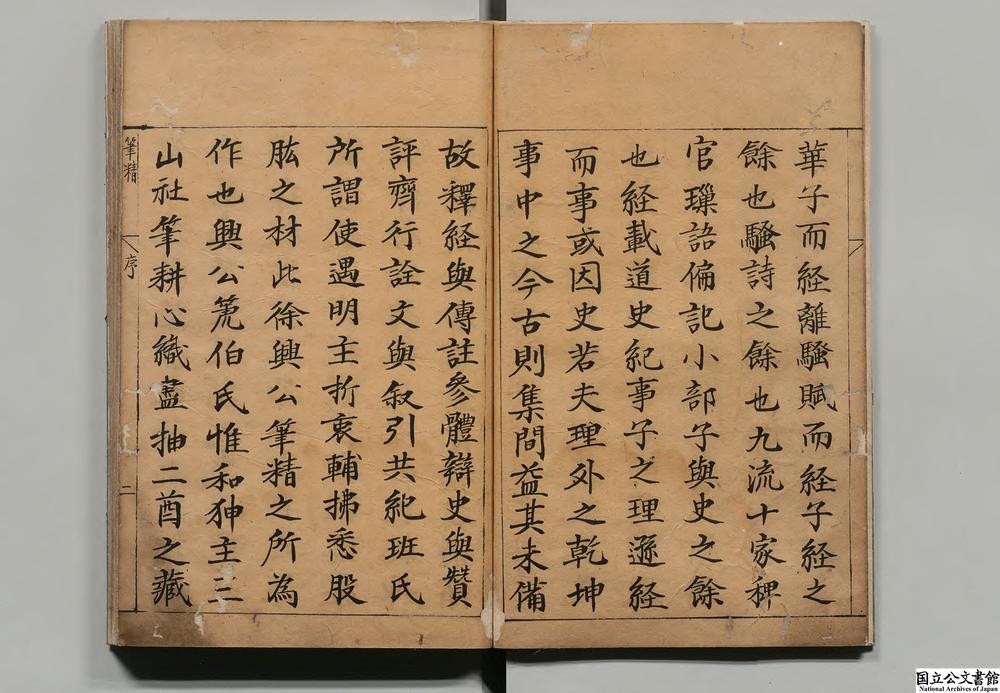 華子而経離騷賦而経子経之
餘也騷詩之餘也九流十家稗
官璅語偏記小部子與史之餘
也経載道史紀事子之理遜経
而事或因史若夫理外之乾坤
事中之今古則集間益其未備
故釋経與傳註參體辯史與贊
評齊行詮文與叙引共紀班氏
所謂使遇明主折衷輔拂悉股
肱之材此徐興公筆精之所為
作也興公箎伯氏惟和狎主三
山社筆耕心織盡抽二酉之藏
筆精
序
二
国立公文書館
National Archives of Japan